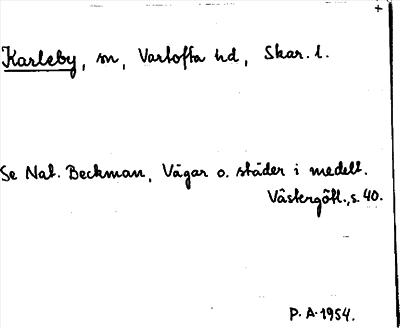 Karleby, sn, Vartofta hd, Skar. l.
Se Nat. Beckman, Vägar o. städer i medelt.
Västergötl., s. 40.
P. A. 1954.